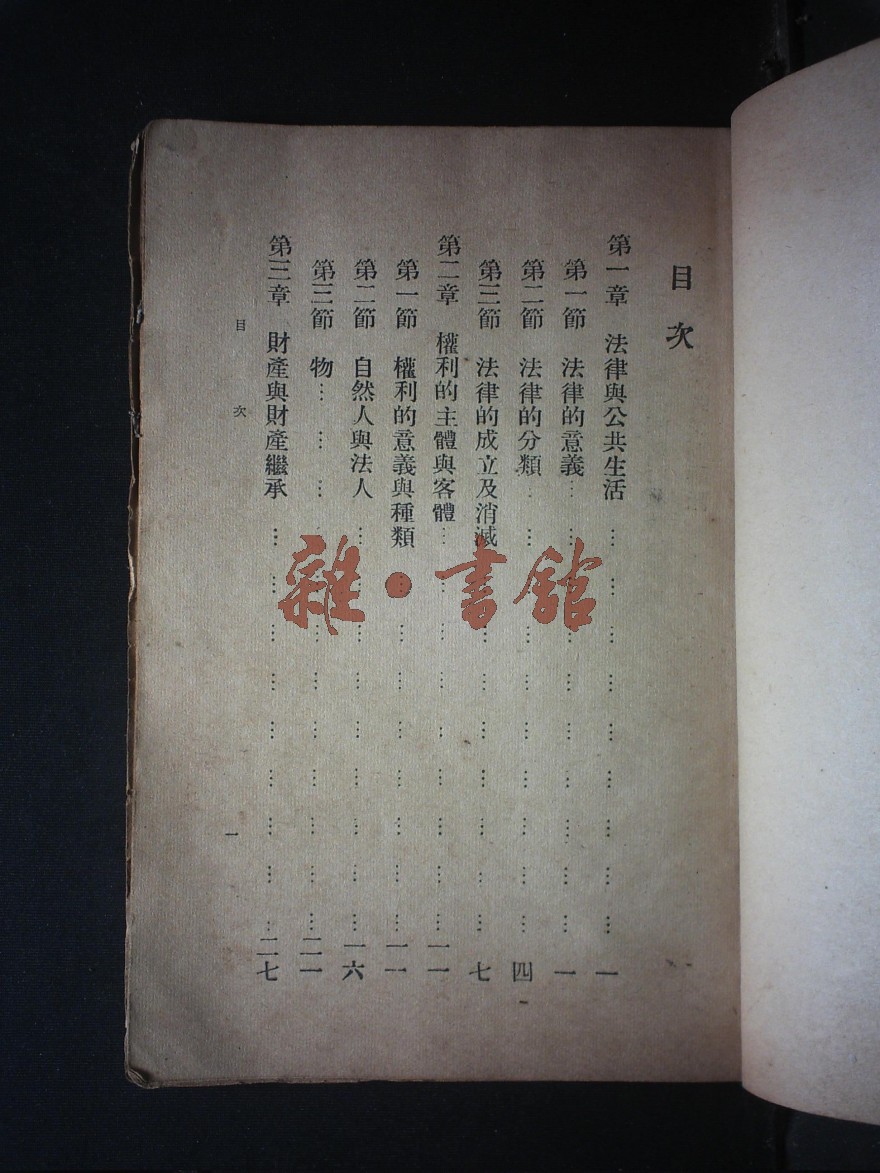 目次
第一章　法律與公共生活………………………一
第一節　法律的意義………………………一
第二節　法律的分類………………………四
第三節　法律的成立及消滅………………………七
第二章　權利的主體與客體………………………一一
第一節　權利的意義與種類………………………一一
第二節　自然人與法人………………………一六
第三節　物………………………二一
第三章　財產與財產繼承………………………二七
目次　一
雜·書館